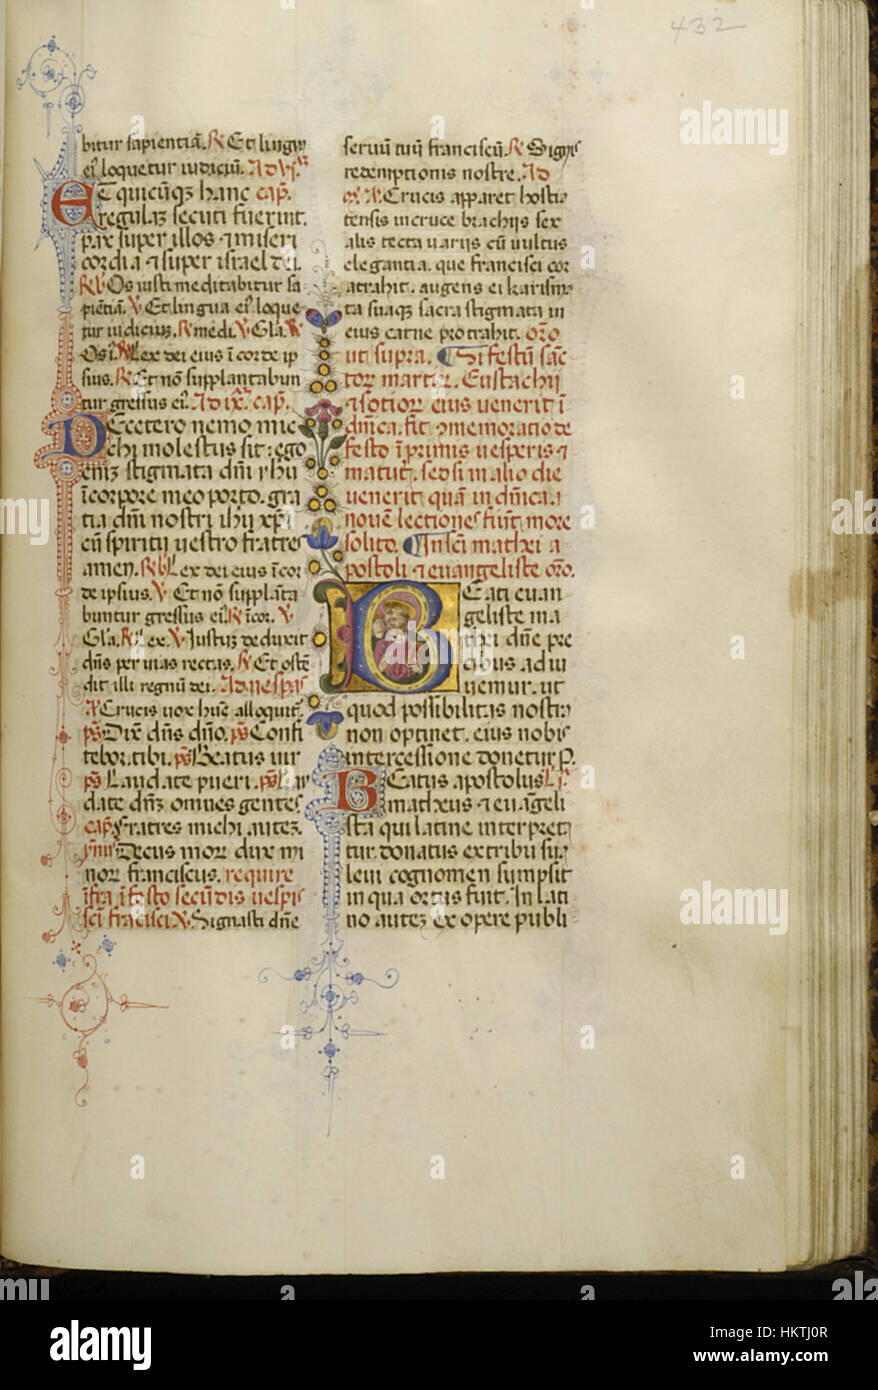 432
bitur sapientiā. R Et lingua
ei' loquetur iudiciū. Ad vi.
ET quicūqꝫ hanc cap.
regulaꝫ secuti fuerint.
pax super illos ⁊ miseri
cordia ⁊ super israel dei.
Rb Os iusti meditabitur sa
piētiam. V Et lingua ei' loque
tur iudiciuꝫ. R medi. V Gla. R
Os i. Lex dei eius ī corde ip
sius. R Et nō supplantabun
tur gressus ei'. Ad ix. cap.
DE cetero nemo mic
chi molestus sit: ego
enīꝫ stigmata dn̄i ihū
ī corpore meo porto. gra
tia dn̄i nostri ihū xp̄i
cū spiritu vestro fratres
amen. Rb Lex dei eius ī cor
de ipsius. V Et nō supplāta
buntur gressus ei'. R ī cor. V
Gla. R Lex. V Iustuꝫ deduxit
dn̄s per uias rectas. R Et oste
dit illi regnū dei. Ad uesp̄as
A Crucis uox hūc alloquit'.
p̄s Dix. dn̄s dn̄o. p̄s Confi
tebor. tibi. p̄s Beatus uir
p̄s Laudate pueri. p̄s Lau
date dn̄ꝫ omnes gentes
cap. Fratres michi auteꝫ.
ymn' Decus mor. dux mi
nor franciscus. require
īfra ī festo secūdis uesp̄is
sc̄i frācisci V. Signasti dn̄e
seruū tuū franciscū. R Signis
redemptionis nostre. Ad
A Crucis apparet hostia
tensis in cruce brachijs sex
alis tecta uarijs cū uultus
elegantia. que francisci cor
atrahit. augens ei karisma
ta suaqꝫ sacra stigmata in
eius carne protrahit. oro
ut supra. Si festū sanc
tor. martir. Eustachij
⁊ sotior. eius uenerit ī
dn̄ica. fit 9memoratio de
festo ī primis uesperis ⁊
matut'. sed si in alio die
uenerit quam in dn̄ica. i
nouē lectiones fiunt more
solito. In sc̄i mathei a
postoli ⁊ euangeliste oro.
BEati euan
geliste ma
thei dn̄e pre
cibus adiu
uemur. ut
quod possibilitas nostra
non optinet. eius nobis
intercessione donetur. P.
BEatus apostolus L. i.
matheus ⁊ euangeli
sta qui latine interpreta
tur. donatus ex tribu su a
leui cognomen sumpsit
in qua ortus fuit. In lati
no auteꝫ ex opere publi
alamy
alamy
alamy
alamy
alamy
alamy
alamy
Image ID: HKTJ0R
www.alamy.com